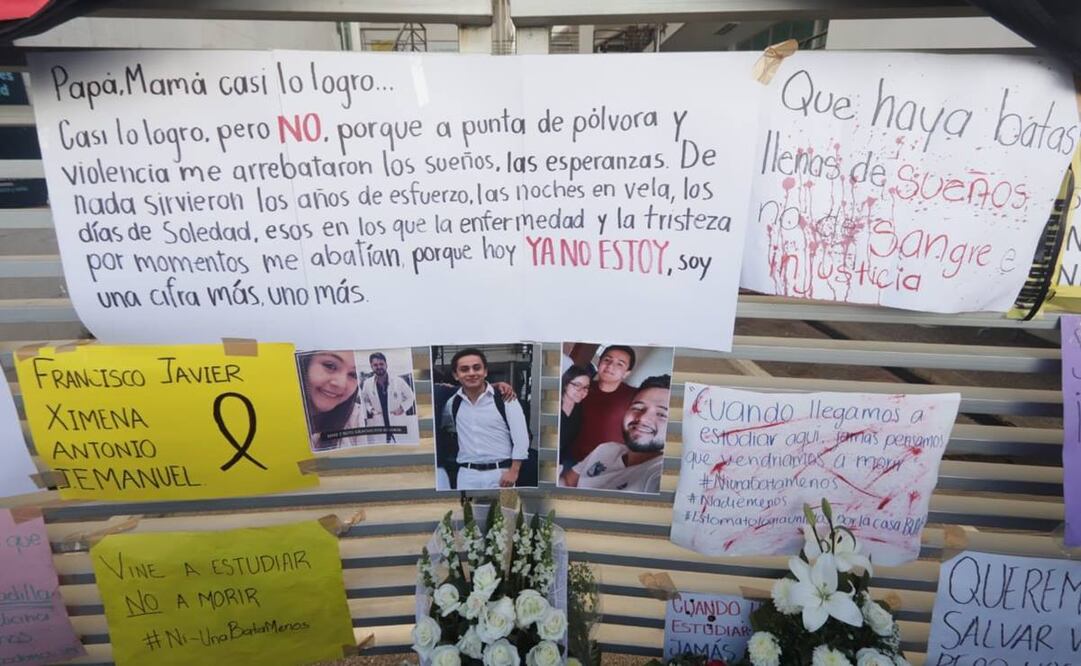 Papá, Mamá casi lo logro...
Casi lo logro, pero NO, porque a punta de pólvora y
violencia me arrebataron los sueños, las esperanzas. De
nada sirvieron los años de esfuerzo, las noches en vela, los
días de Soledad, esos en los que la enfermedad y la tristeza
por momentos me abatían, porque hoy YA NO ESTOY, soy
una cifra más, uno más.
Que haya batas
llenas de sueños
no de sangre e
injusticia
FRANCISCO JAVIER
XIMENA
ANTONIO
JEMANUEL.
"Cuando llegamos a
estudiar aquí, jamás pensamos
que vendríamos a morir
#NiUnaBataMenos
#Nadiemenos
#Estomatologíaunida por la casa
VINE A ESTUDIAR
NO A MORIR
#Ni-UnaBataMenos
que
CUANDO
ESTUDIAR
JAMÁS
QUEREM
SALVAR V